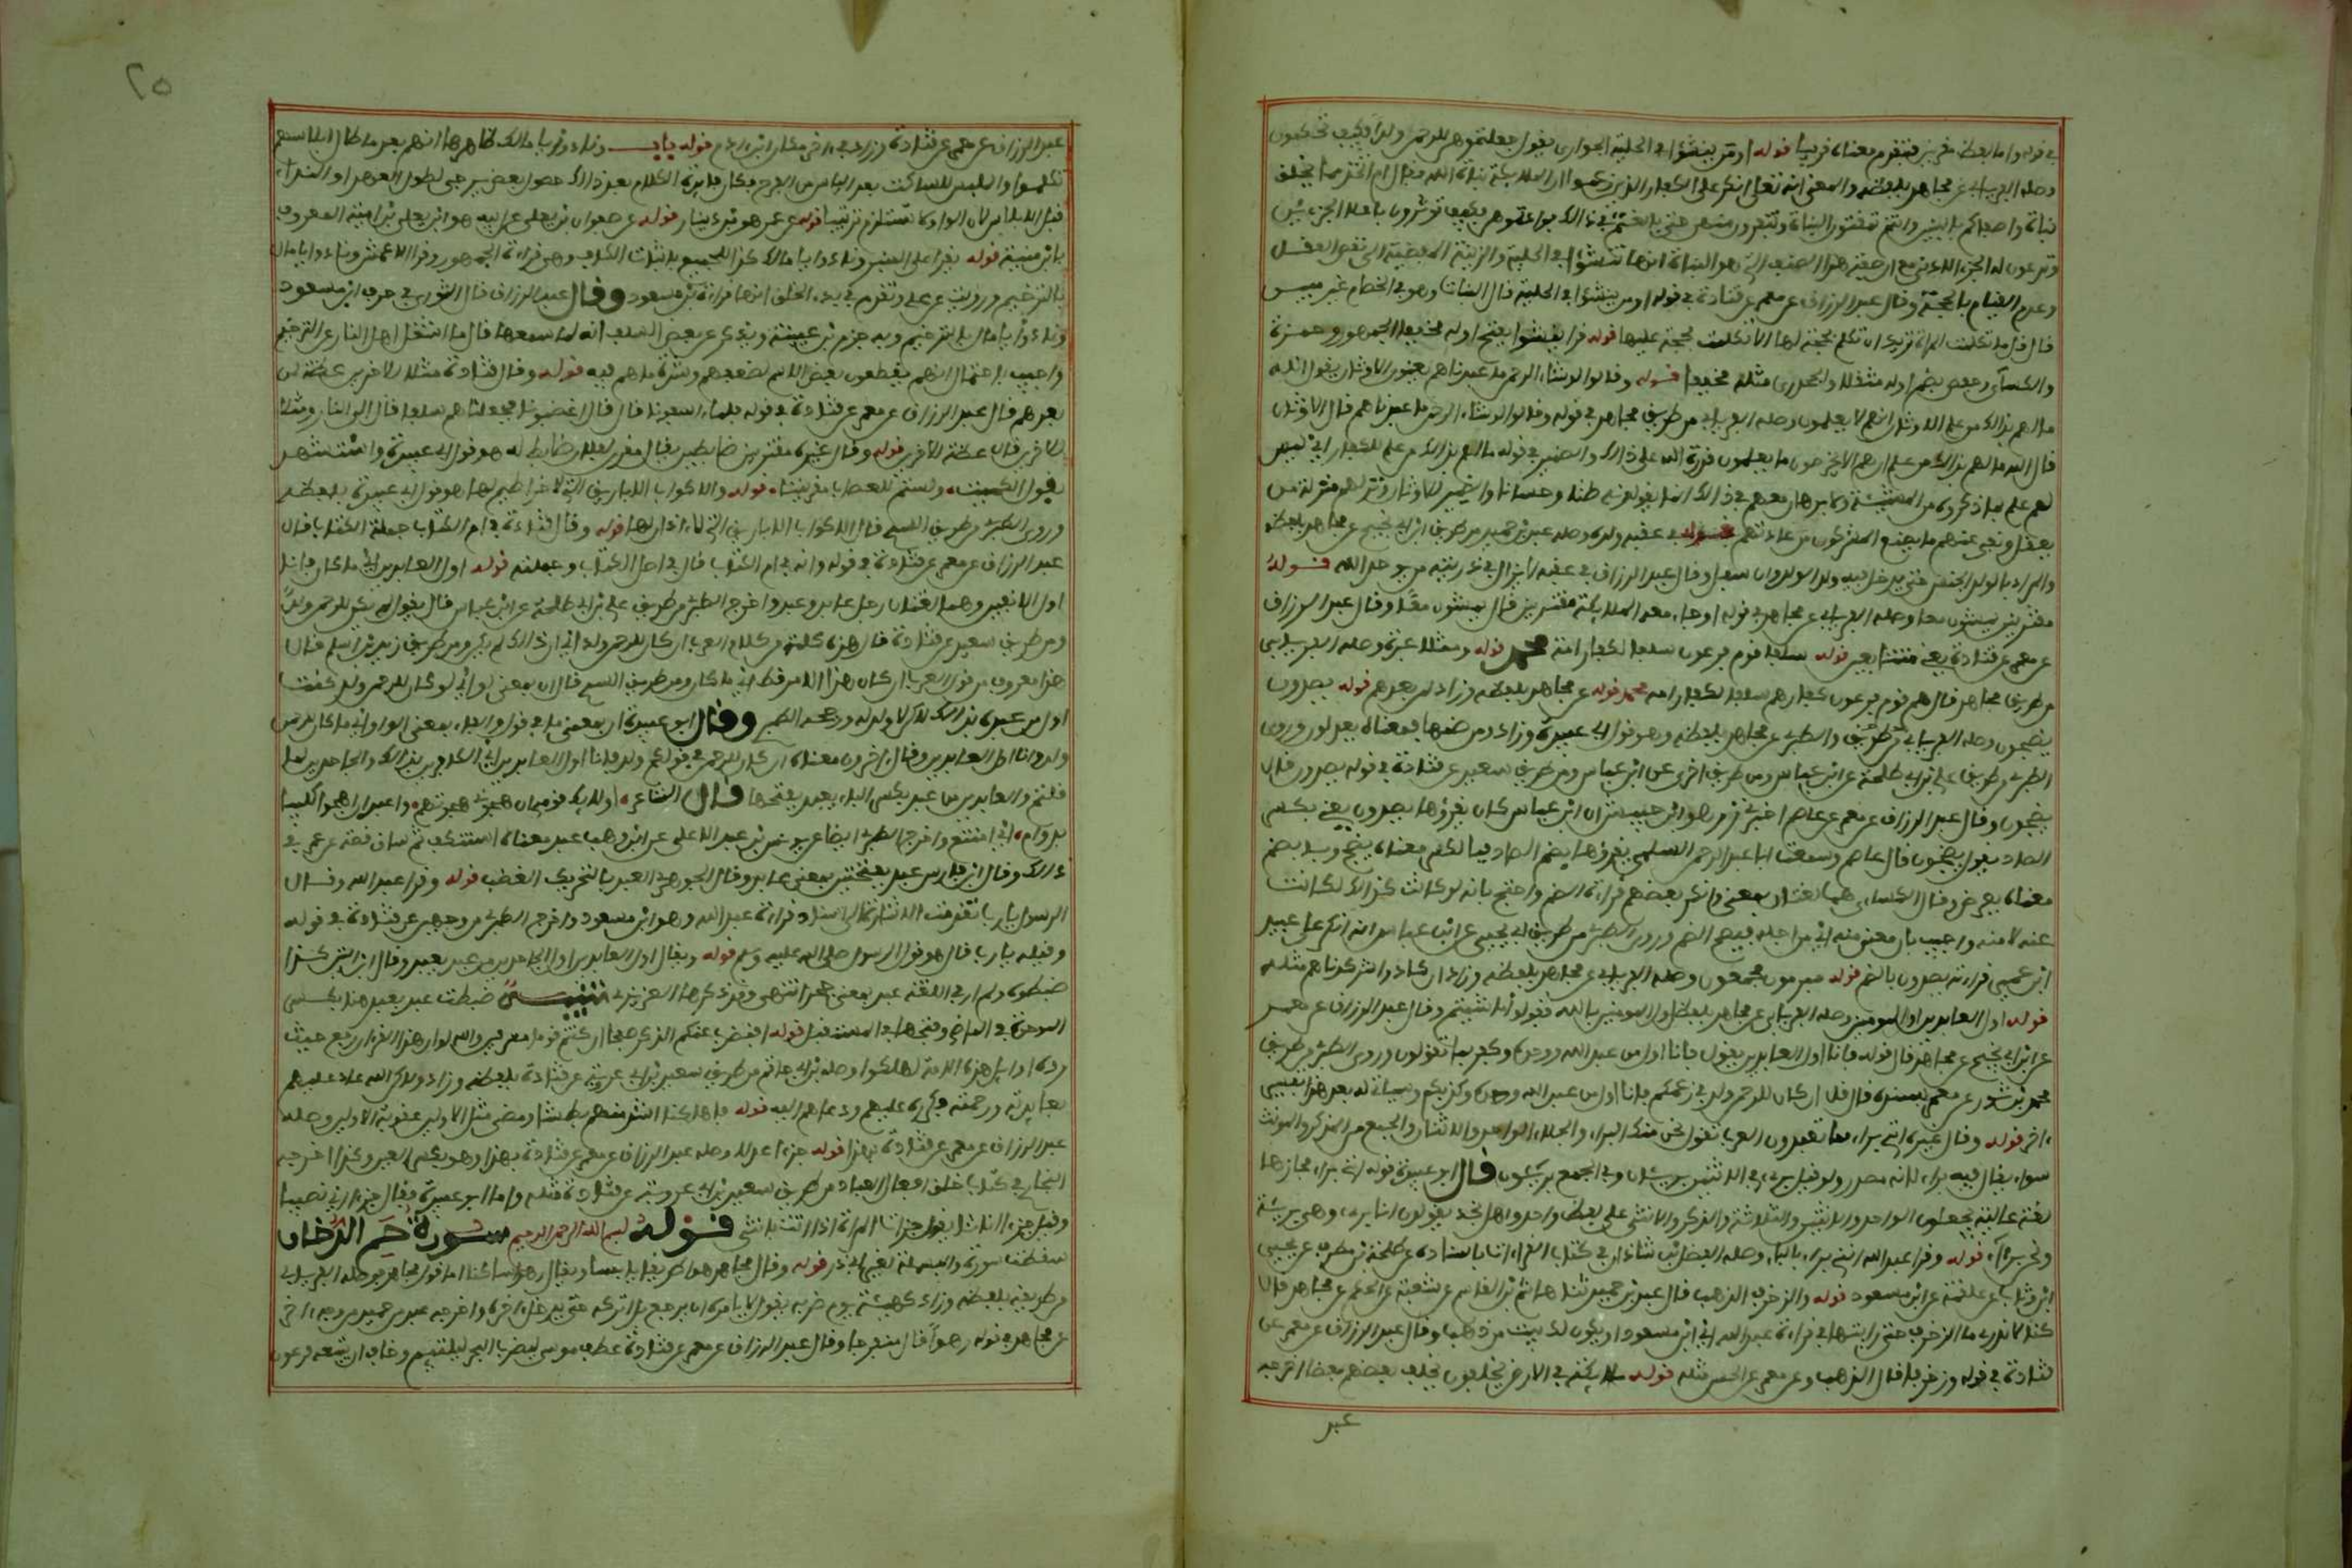 في قوله واما بلفظ مقرنين فتقدم معناه قريبا قوله اومن ينشؤا في الحلية الجواري يقول جعلتموهن للرحمن ولدا فكيف تحكمون
وصله الفريابي عن مجاهد بلفظه والمعنى انه تعلى انكر على الكفار الذين زعموا ان الملايكة بنات الله فقال ام اتخذ مما يخلق
بنات واصفاكم بالبنين وانتم تمقتون البنات وتنفرون منهن حتى بالغتم في ذالك فكيف توثرون باعلا الجزءين
وتدعون له الجزء الادنى مع ان صفة هذا الصنف الذي هو البنات انها تنشؤا في الحلية والزينة المفضية الى نقص العقل
وعدم القيام بالحجة وقال عبد الرزاق عن معمر عن قتادة في قوله اومن ينشؤا في الحلية قال البنات وهو في الخصام غير مبين
قال قل ما تكلمت المراة تريد ان تكلم بحجة لها الا تكلمت بحجة عليها قوله قرا ينشؤا بفتح اوله مخففا الجمهور وحمزة
والكساءي وحفص بضم اوله مثقلا والجحدري مثله مخففا قوله وقالوا لو شاء الرحمن ما عبدناهم يعنون الاوثان يقول الله
ما لهم بذالك من علم الاوثان انهم لا يعلمون وصله الفريابي من طريق مجاهد في قوله وقالوا لو شاء الرحمن ما عبدناهم قال الاوثان
قال الله ما لهم بذالك من علم ان هم الا يخرصون ما يعلمون قدرة الله على ذالك والضمير في قوله ما لهم بذالك من علم للكفار اي ليس
لهم علم بما ذكروه من المشيئة ولا برهان معهم في ذالك انما يقولونه ظنا وحسبانا والضمير للاوثان ونزلهم منزلة من
يعقل ونفى عنهم ما يصنع المشركون من عبادتهم قوله في عقبه ولده وصله عبد بن حميد من طريق ابن ابي نجيح عن مجاهد بلفظه
والمراد بالولد الجنس حتى يدخل فيه ولد الولد وان سفل وقال عبد الرزاق في عقبه لا يزال في ذريته من يوحد الله قوله
مقترنين يمشون معا وصله الفريابي عن مجاهد في قوله او جاء معه الملايكة مقترنين قال يمشون معا وقال عبد الرزاق
عن معمر عن قتادة يعني متتابعين قوله سلفا قوم فرعون سلفا لكفار امة محمد قوله ومثلا عبرة وصله الفريابي
من طريق مجاهد قال هم قوم فرعون كفارهم سلفا لكفار امة محمد قوله عن مجاهد بلفظه وزاد لمن بعدهم قوله يصدون
يضجون وصله الفريابي من طريق والطبري عن مجاهد بلفظه وهو قول ابي عبيدة وزاد ومن ضمها فمعناه يعدلون وروى
الطبري من طريق علي بن ابي طلحة عن ابن عباس ومن طريق اخرى عن ابن عباس ومن طريق سعيد عن قتادة في قوله يصدون قال
يضجون وقال عبد الرزاق عن معمر عن عاصم اخبرني زر هو ابن حبيش ان ابن عباس كان يقرؤها يصدون يعني بكسر
الصاد يقول يضجون قال عاصم وسمعت ابا عبد الرحمن السلمي يقرؤها بضم الصاد فبالكسر معناه يضج وبالضم
معناه يعرض وقال الكساءي هما لغتان بمعنى وانكر بعضهم قراءة الضم واحتج بانه لو كانت كذالك لكانت
عنه لا منه واجيب بان معنى منه اي من اجله فيصح الضم وروى الطبري من طريق ابي يحيى عن ابن عباس انه انكر على عبيد
ابن عمير قراءته يصدون بالضم قوله مبرمون مجمعون وصله الفريابي عن مجاهد بلفظه وزاد ان كادوا شرا كدناهم مثله
قوله اول العابدين اول المومنين وصله الفريابي عن مجاهد بلفظ اول المومنين بالله فقولوا ما شيتم وقال عبد الرزاق عن معمر
عن ابن ابي نجيح عن مجاهد قال قوله فانا اول العابدين يقول فانا اول من عبد الله وحده وكفر بما تقولون وروى الطبري من طريق
محمد بن ثور عن معمر بسنده قال قل ان كان للرحمن ولد في زعمكم فانا اول من عبد الله وحده وكذبكم وسياتي له بعد هذا تفسير
ءاخر قوله وقال غيره انني براء مما تعبدون العرب تقول نحن منك البراء والخلاء الواحد والاثنان والجمع من المذكر والمونث
سواء يقال فيه براء لانه مصدر ولو قيل بريء لقيل في الاثنين بريئان وفي الجمع بريئون قال ابو عبيدة قوله انني براء مجازها
لغة عالية يجعلون الواحد والاثنين والثلاثة والذكر والانثى على لفظ واحد واهل نجد يقولون انا بريء وهي بريئة
ونحن برءاء قوله وقرا عبد الله انني بريء بالياء وصله الفضل بن شاذان في كتاب القراءات باسناده عن طلحة بن مصرف عن يحيى
ابن وثاب عن علقمة عن ابن مسعود قوله والزخرف الذهب قال عبد بن حميد حدثنا هاشم بن القاسم عن شعبة عن الحكم عن مجاهد قال
كنا لا ندري ما الزخرف حتى رايتها في قراءة عبد الله اي ابن مسعود او يكون لك بيت من ذهب وقال عبد الرزاق عن معمر عن
قتادة في قوله وزخرفا قال الذهب وعن معمر عن الحسن مثله قوله ملايكة في الارض يخلفون يخلف بعضهم بعضا اخرجه
عبد
٢٥
عبد الرزاق عن معمر عن قتادة وزاد في ءاخره مكان ابن ءادم قوله باب ونادوا يا مالك ظاهرها انهم بعد ما طال ابلاسهم
تكلموا والمبلس الساكت بعد الياس من الفرج فكان فايدة الكلام بعد ذالك حصول بعض فرج لطول العهد او النداء
قبل الابلاس لان الواو لا تستلزم ترتيبا قوله عن عمرو هو بن دينار قوله عن صفوان بن يعلى عن ابيه هو ابن يعلى بن امية المعروف
بابن منية قوله يقرا على المنبر ونادوا يا مالك كذا للجميع باثبات الكاف وهي قراءة الجمهور وقرا الاعمش ونادوا يا مال
بالترخيم ورويت عن علي وتقدم في بدء الخلق انها قراءة بن مسعود وقال عبد الرزاق قال الثوري في حرف ابن مسعود
ونادوا يا مال بالترخيم وبه جزم بن عيينة ويذكر عن بعض السلف انه لما سمعها قال ما اشغل اهل النار عن الترخيم
واجيب باحتمال انهم يقطعون بعض الاسم لضعفهم وشدة ما هم فيه قوله وقال قتادة مثلا للاخرين عظة لمن
بعدهم قال عبد الرزاق عن معمر عن قتادة في قوله فلما ءاسفونا قال قال اغضبونا فجعلناهم سلفا قال الى النار ومثلا
للاخرين قال عظة للاخرين قوله وقال غيره مقرنين ضابطين يقال فلان مقرن لفلان ضابط له هو قول ابي عبيدة واستشهد
بقول الكميت ولستم للصعاب مقرنينا قوله والاكواب الاباريق التي لا خراطيم لها هو قول ابي عبيدة بلفظه
وروى الطبري من طريق السدي قال الاكواب الاباريق التي لا ءاذان لها قوله وقال قتادة في ام الكتاب جملة الكتاب قال
عبد الرزاق عن معمر عن قتادة في قوله وانه في ام الكتاب قال في اصل الكتاب وجملته قوله اول العابدين اي ما كان فانا
اول الانفين وهما لغتان رجل عابد وعبد واخرج الطبري من طريق علي بن ابي طلحة عن ابن عباس قال يقول لم يكن للرحمن ولد
ومن طريق سعيد عن قتادة قال هذه كلمة من كلام العرب ان كان للرحمن ولد اي ان ذالك لم يكن ومن طريق زيد بن اسلم قال
هذا معروف من قول العرب ان كان هذا الامر قط اي ما كان ومن طريق السدي قال ان بمعنى لو اي لو كان للرحمن ولد كنت
اول من عبده بذالك لكن لا ولد له ورجحه الطبري وقال ابو عبيدة ان بمعنى ما في قول والفاء بمعنى الواو اي ما كان للرحمن
ولد وانا اول العابدين وقال ءاخرون معناه ان كان للرحمن في قولكم ولد فانا اول العابدين اي الكافرين بذالك والجاحدين لما
قلتم والعابدين من عبد بكسر الباء يعبد بفتحها قال الشاعر اولايك قومي ان هجوني هجوتهم واعبد ان اهجوا كليبا
بدارم اي امتنع واخرج الطبري ايضا عن يونس بن عبد الاعلى عن ابن وهب عبد معناه استنكف ثم ساق قصة عن عمر في
ذالك وقال ابن فارس عبد بفتحتين بمعنى عابد وقال الجوهري العبد بالتحريك الغضب قوله وقرا عبد الله وقال
الرسول يا رب تقدمت الاشارة الى اسناد قراءة عبد الله وهو ابن مسعود واخرج الطبري من وجهين عن قتادة في قوله
وقيله يا رب قال هو قول الرسول صلى الله عليه وسلم قوله ويقال اول العابدين اول الجاحدين من عبد يعبد وقال ابن التين كذا
ضبطوه ولم ار في اللغة عبد بمعنى جحد انتهى وقد ذكرها العزيزي تنبيه ضبطت عبد يعبد هنا بكسر
الموحدة في الماضي وفتحها في المستقبل قوله افنضرب عنكم الذكر صفحا ان كنتم قوما مسرفين والله لو ان هذا القرءان رفع حيث
رده اوايل هذه الامة لهلكوا وصله بن ابي حاتم من طريق سعيد بن ابي عروبة عن قتادة بلفظه وزاد ولاكن الله عاد عليهم
بعايدته ورحمته فكرره عليهم ودعاهم اليه قوله فاهلكنا اشد منهم بطشا ومضى مثل الاولين عقوبة الاولين وصله
عبد الرزاق عن معمر عن قتادة بهذا قوله جزءا عدلا وصله عبد الرزاق عن معمر عن قتادة بهذا وهو بكسر العين وكذا اخرجه
البخاري في كتاب خلق افعال العباد من طريق سعيد بن ابي عروبة عن قتادة مثله واما ابو عبيدة فقال جزءا اي نصيبا
وقيل جزءا اناثا تقول جزات المراة اذا اتت بانثى قوله بسم الله الرحمن الرحيم سورة حم الدخان
سقطت سورة والبسملة لغير ابي ذر قوله وقال مجاهد رهوا طريقا يابسا ويقال رهوا ساكنا اما قول مجاهد فوصله الفريابي
من طريقه بلفظه وزاد كهيئته يوم ضربه يقول لا يامره ان يرجع بل اتركه حتى يدخل ءاخرهم واخرجه عبد بن حميد من وجه ءاخر
عن مجاهد في قوله رهوا قال منفرجا وقال عبد الرزاق عن معمر عن قتادة عطف موسى ليضرب البحر ليلتيم وخاف ان يتبعه فرعون